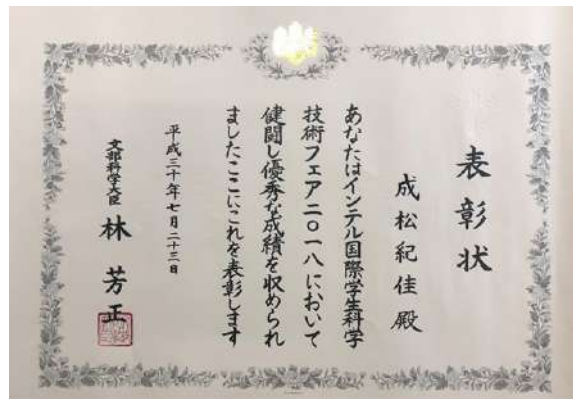 表彰状
成松紀佳殿
あなたはインテル国際学生科学
技術フェア二〇一八において
健闘し優秀な成績を収められ
ましたここにこれを表彰します
平成三十年七月二十三日
文部科学大臣 林芳正